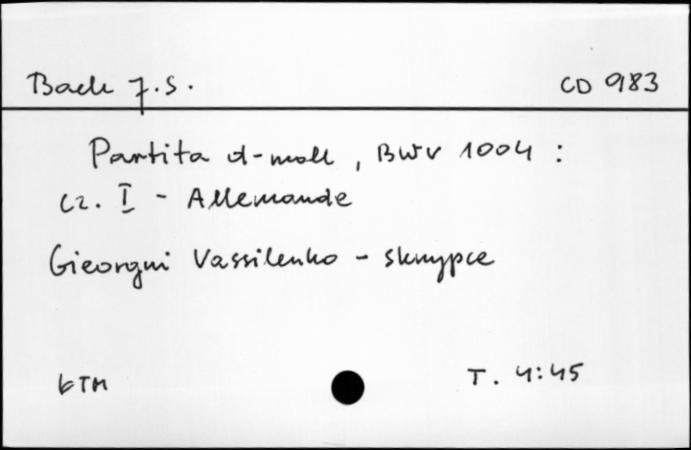 Bach J.S. CD 983
Partita d-moll, BWV 1004 :
cz. I - Allemande
Gieorgui Vassilenko - skrzypce
GTM T. 4:45